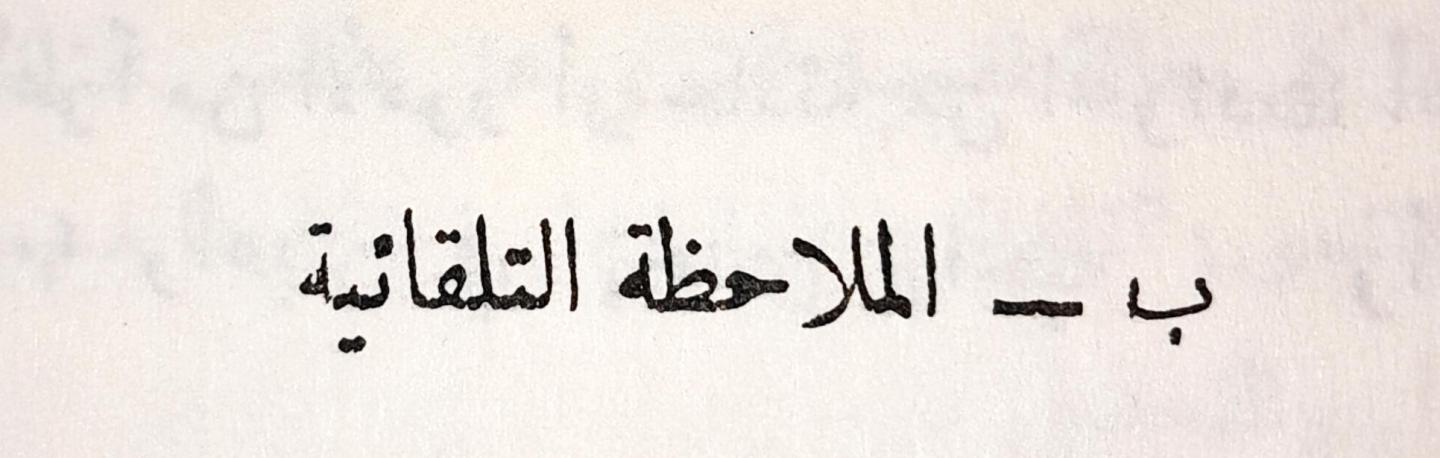 ب — الملاحظة التلقائية